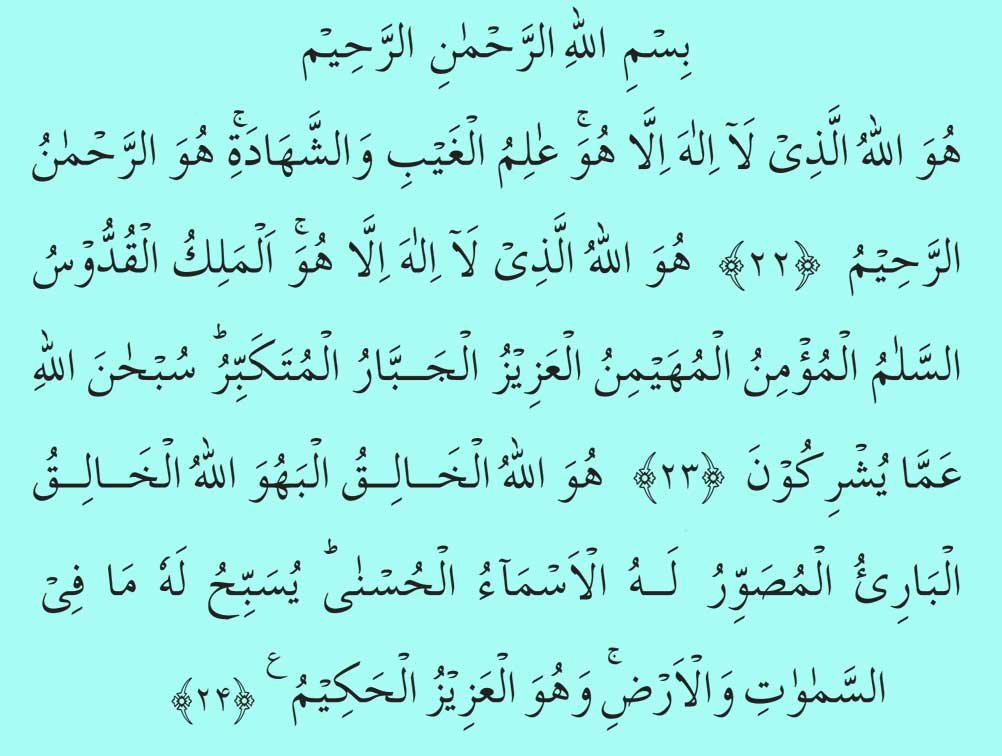 بِسۡمِ اللهِ الرَّحۡمٰنِ الرَّحِيۡم
هُوَ اللهُ الَّذِىۡ لَاۤ اِلٰهَ اِلَّا هُوَ‌ۚ عٰلِمُ الۡغَيۡبِ وَالشَّهَادَةِ‌ۚ هُوَ الرَّحۡمٰنُ
الرَّحِيۡمُ ﴿۲۲﴾ هُوَ اللهُ الَّذِىۡ لَاۤ اِلٰهَ اِلَّا هُوَ‌ۚ اَلۡمَلِكُ الۡقُدُّوۡسُ
السَّلٰمُ الۡمُؤۡمِنُ الۡمُهَيۡمِنُ الۡعَزِيۡزُ الۡجَـبَّارُ الۡمُتَكَبِّرُ‌ؕ سُبۡحٰنَ اللهِ
عَمَّا يُشۡرِكُوۡنَ ﴿۲۳﴾ هُوَ اللهُ الۡخَـالِـقُ الۡبَهُوَ اللهُ الۡخَـالِـقُ
الۡبَارِئُ الۡمُصَوِّرُ لَـهُ الۡاَسۡمَآءُ الۡحُسۡنٰى‌ؕ يُسَبِّحُ لَهٗ مَا فِىۡ
السَّمٰوٰتِ وَالۡاَرۡضِ‌ۚ وَهُوَ الۡعَزِيۡزُ الۡحَكِيۡمُ ع ﴿۲۴﴾